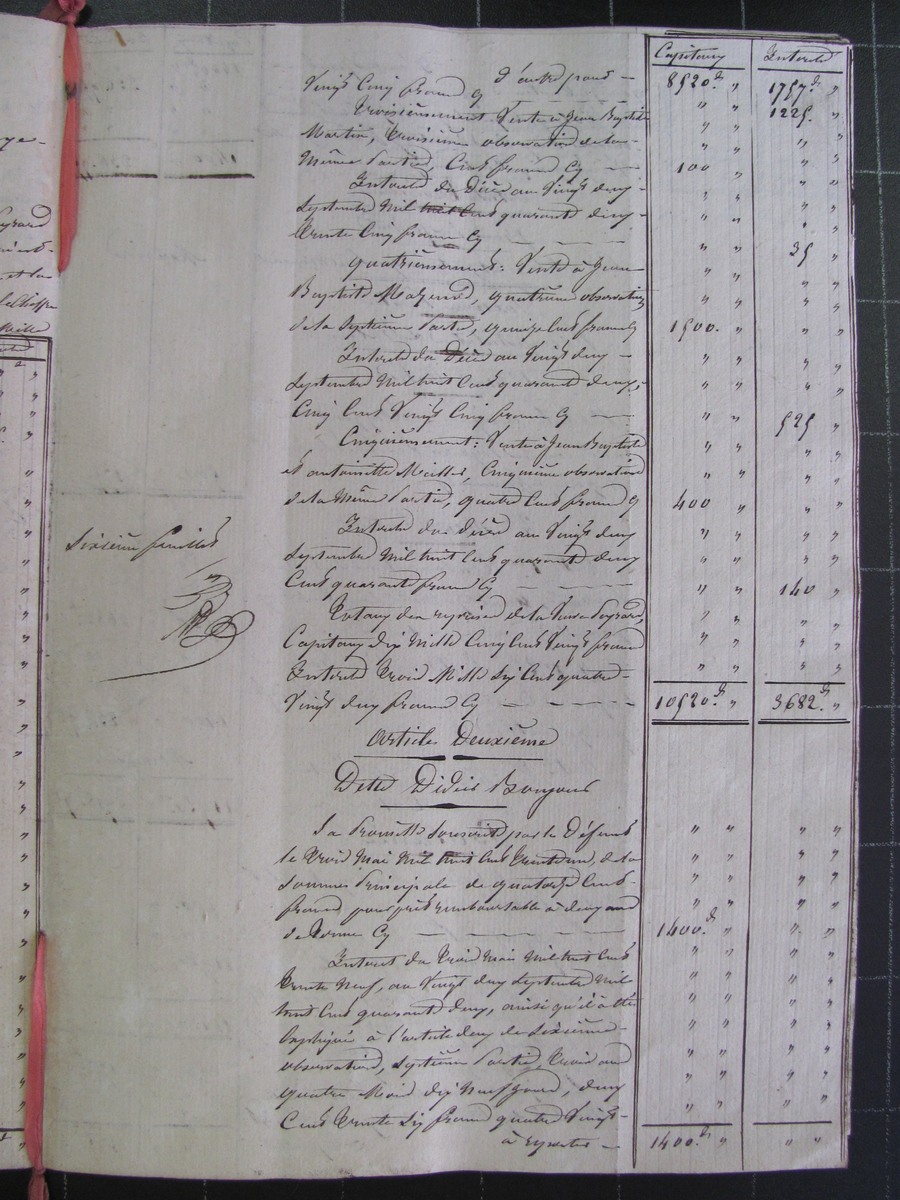 Capitaux Interets
d'autre part — 8520.f „ 1757.f „
Vingt Cinq francs Cy — „ „ 1225. „
Troisiemement Vente à Jean Baptiste
Martin, troisieme observation de la
Même Partie, Cent francs Cy — 100 „
Interets du Décés au Vingt deux
Septembre Mil huit Cent quarante deux
trente Cinq francs Cy — „ „ 35 „
Quatriemement : Vente à Jean
Baptiste quatrieme observation
de la Septieme Partie, quinze Cents francs Cy 1500. „
Interets du Décés au Vingt deux
Septembre Mil huit Cent quarante deux,
Cinq Cent Vingt Cinq francs Cy — „ „ 525 „
Cinquiemement : Vente à Jean Baptiste
et antoinette Cinquieme observation
de la Même Partie, quatre Cents francs Cy 400 „
Interets du décés au Vingt deux
Septembre Mil huit Cent quarante deux
Cent quarante francs Cy — „ „ 140 „
Sixieme feuillet
Totaux des reprises de la Veuve
Capitaux dix Mille Cinq Cent Vingt francs
Interets trois Mille Six Cent quatre
Vingt deux francs Cy — 10520.f „ 3682.f „
Article Deuxième
Dette Didier Bonjour
La Promesse Souscrite par le Défunt
le trois Mai Mil huit Cent de la
Somme Principale de quatorze Cents
francs pour prêt remboursable à deux ans
de terme Cy — 1400.f „
Interet du trois Mai Mil huit Cent
trente Neuf, au Vingt deux Septembre Mil
huit Cent quarante deux, ainsi qu'il a été
expliqué à l'article deux de sixieme
observation, Septieme Partie, trois ans
quatre Mois dix Neuf jours, deux
Cent trente Six francs quatre Vingt
à reporter — 1400.f „ „ „